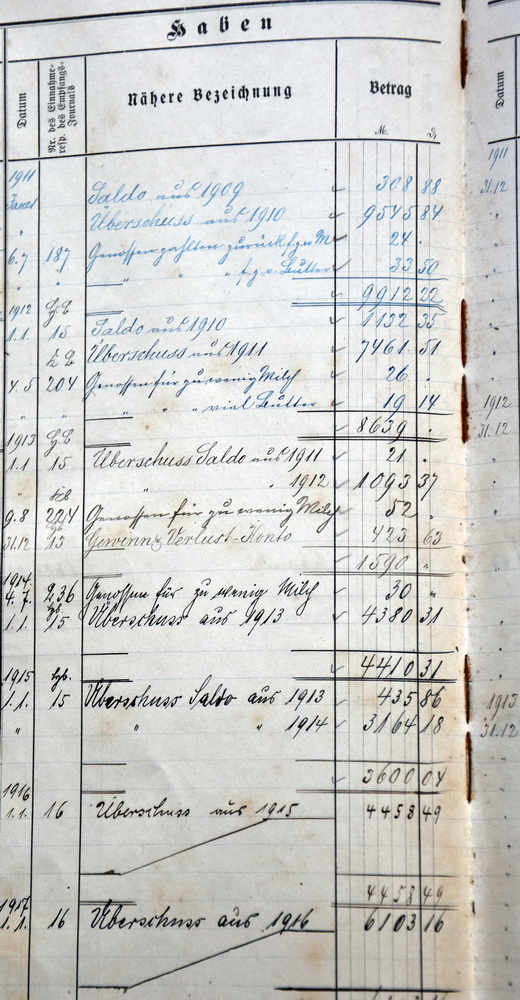 Haben
Datum
Nr. des Einnahme- resp. des Empfangs-Journals
Nähere Bezeichnung
Betrag
Datum
M. ₰
1911
1911
31.12
Saldo aus 1909 308 88
" Überschuss aus 1910 9545 84
6.7 187 Genossen zahlten zurück f. zu w. M. 24 .
" " " " " f. z. v. Butter 33 50
9912 22
1912
1.1. 15 Saldo aus 1910 1132 35
Überschuss aus 1911 7461 51
4.5 204 Genossen für zu wenig Milch 26 .
" " " " " viel Butter 19 14
1912
8639 .
31.12
1913
1.1 15 Überschuss Saldo aus 1911 21 .
" " " 1912 1093 37
9.8 224 Genossen für zu wenig Milch 52 .
31.12 13 Gewinn & Verlust-Konto 423 63
1590 "
1914
4.7. 236 Genossen für zu wenig Milch 30 "
1.1. 15 Überschuss aus 1913 4380 31
4410 31
1915
1.1. 15 Überschuss Saldo aus 1913 435 86
1913
" " " 1914 3164 18
31.12
3600 04
1916
1.1. 16 Überschuss aus 1915 4458 49
4458 49
1917
1.1. 16 Überschuss aus 1916 6103 16